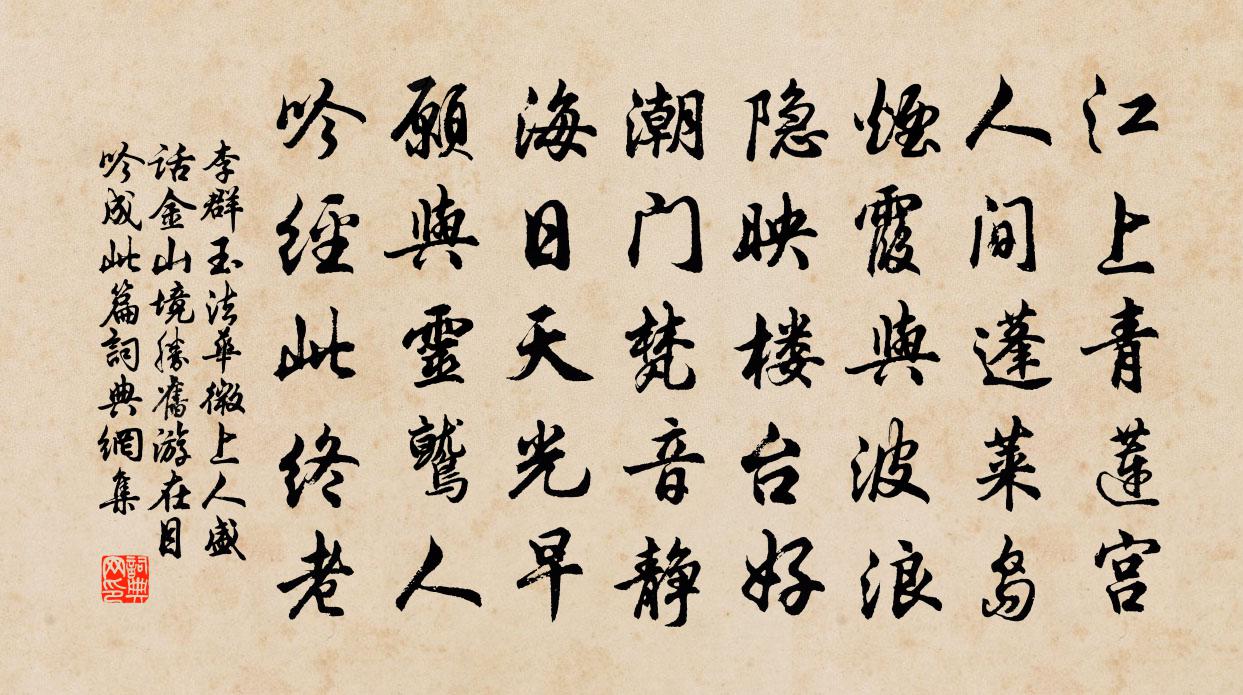 江上青莲宫
人间蓬莱岛
煙霞與波浪
隐映楼台好
潮门梵音静
海日天光早
願與靈鹫人
吟經此终老
李群玉法華微上人盛
话金山境勝舊游在目
吟成此篇詞典網集
詞典
网印